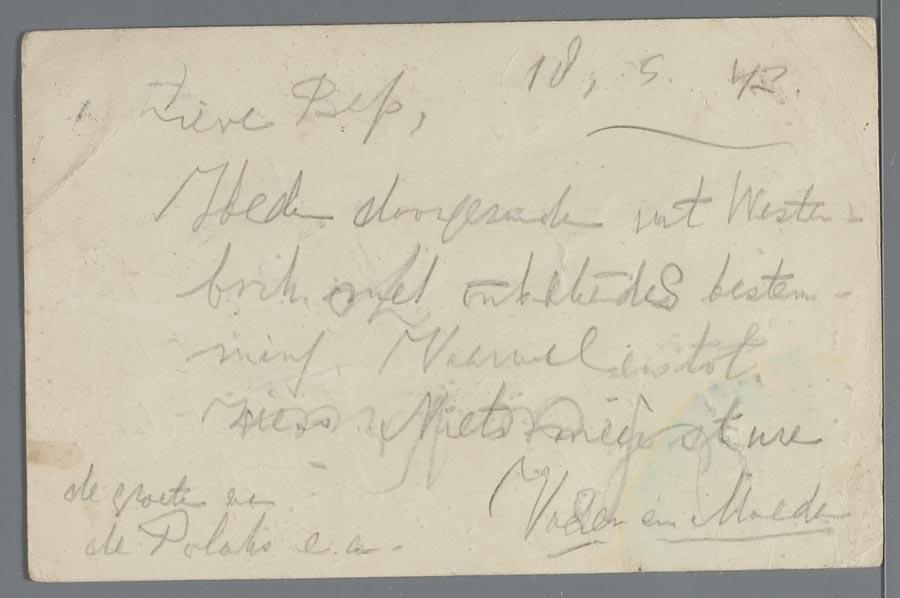 18, 5. 43.
Lieve Bep,
Heden doorgezonden uit Wester-
bork met onbekende bestem-
ming. Vaarwel en tot
ziens. Niets meer sturen
Vader en Moeder
de groeten van
de Polaks e.a.